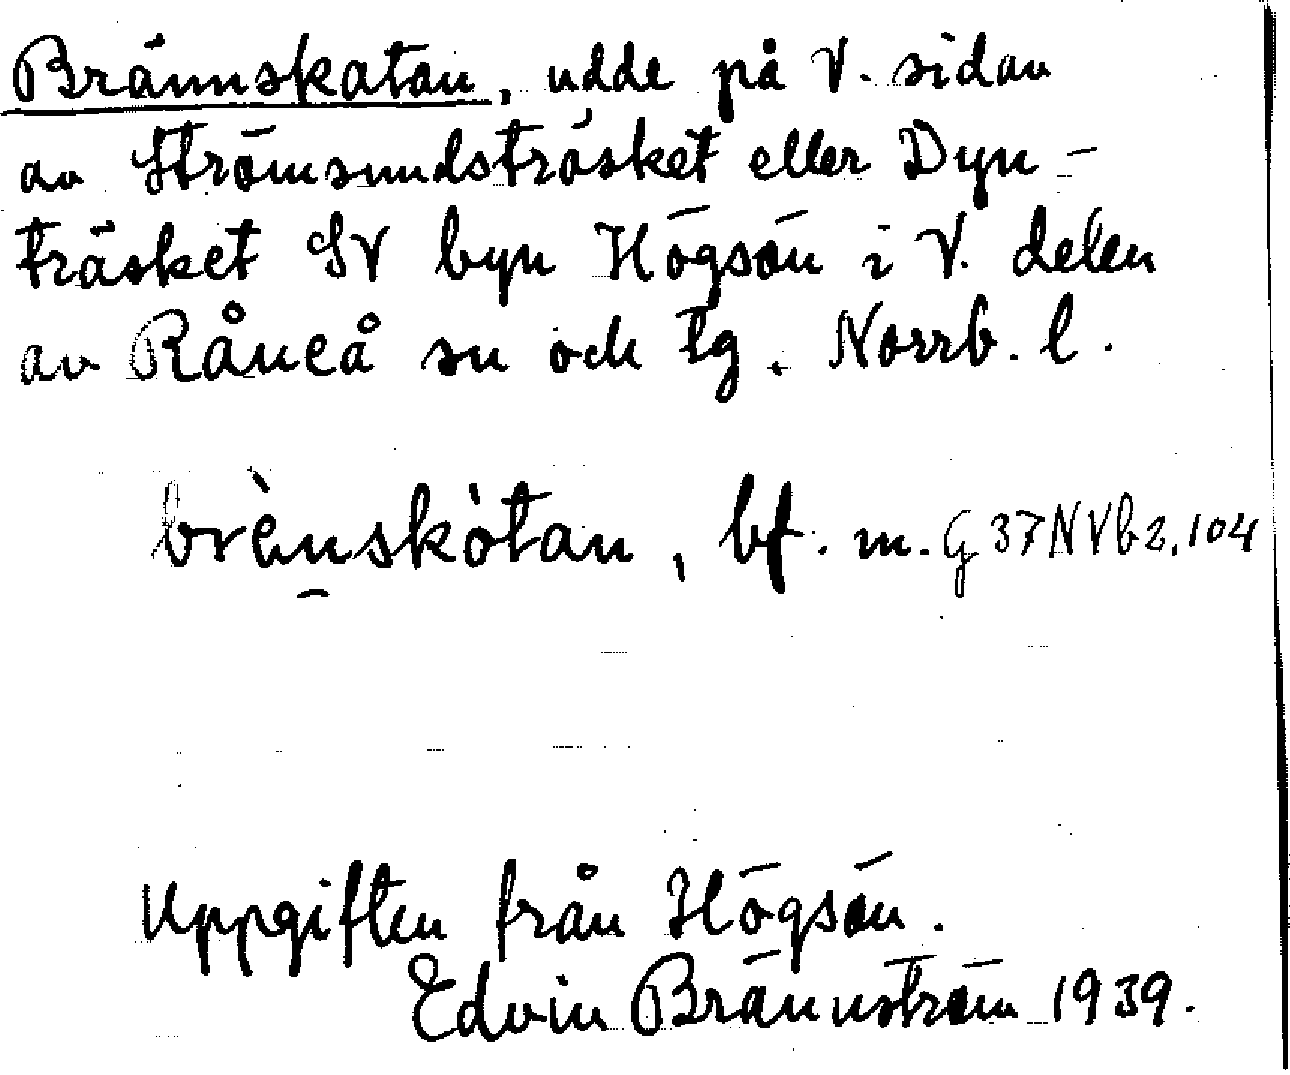 Brännskatan, udde på V. sidan
av Strömsundsträsket eller Dyn-
träsket SV byn Högsön i V. delen
av Råneå sn och tg. Norrb. l.
brènskòtan, bf. m. G 37 NVb2.104
Uppgiften från Högsön.
Edvin Brännström 1939.